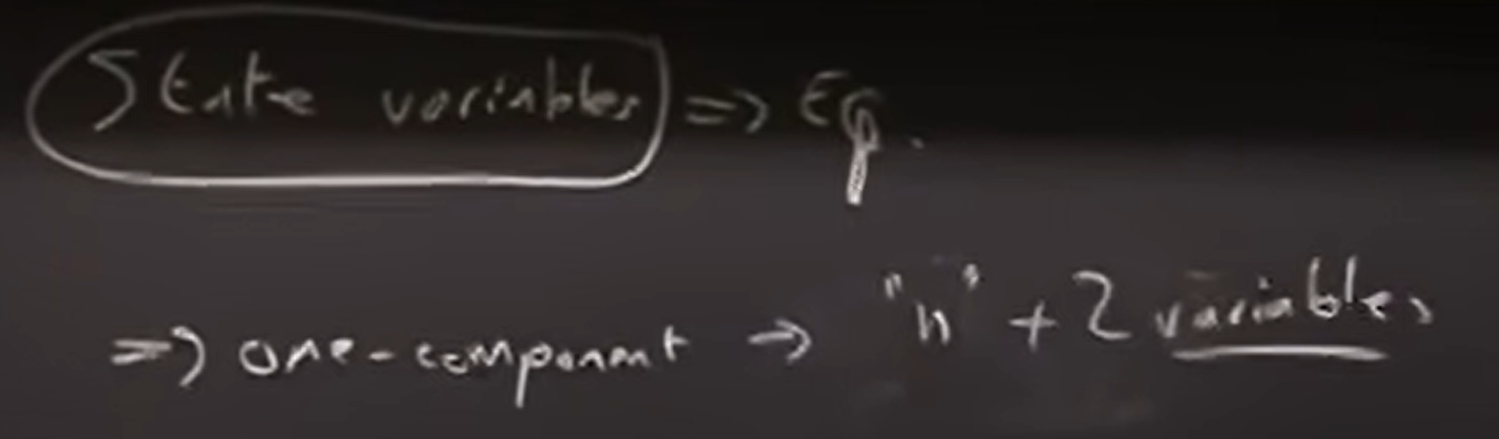 State variables => Eq.
=> one-component → "n" + 2 variables